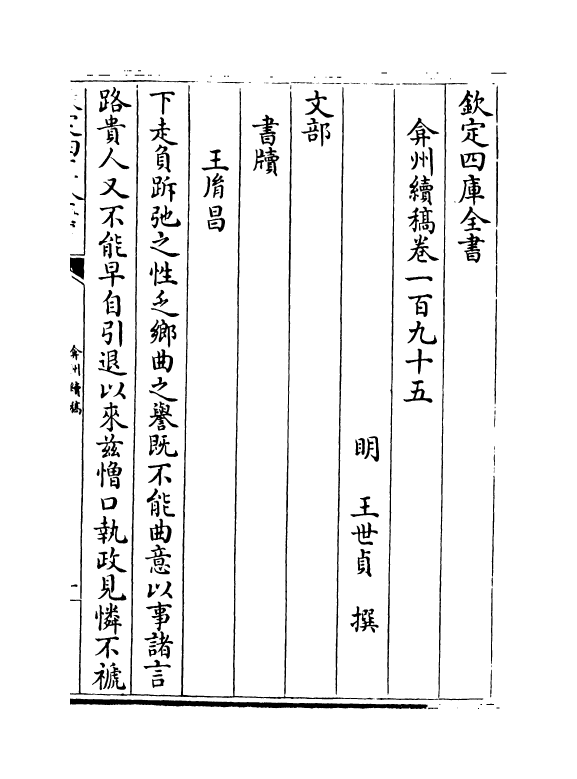 欽定四庫全書
弇州續稿卷一百九十五
明 王世貞 撰
文部
書牘
王胤昌
下走負跅弛之性乏鄉曲之譽既不能曲意以事諸言
路貴人又不能早自引退以來兹憎口執政見憐不褫
弇州續稿